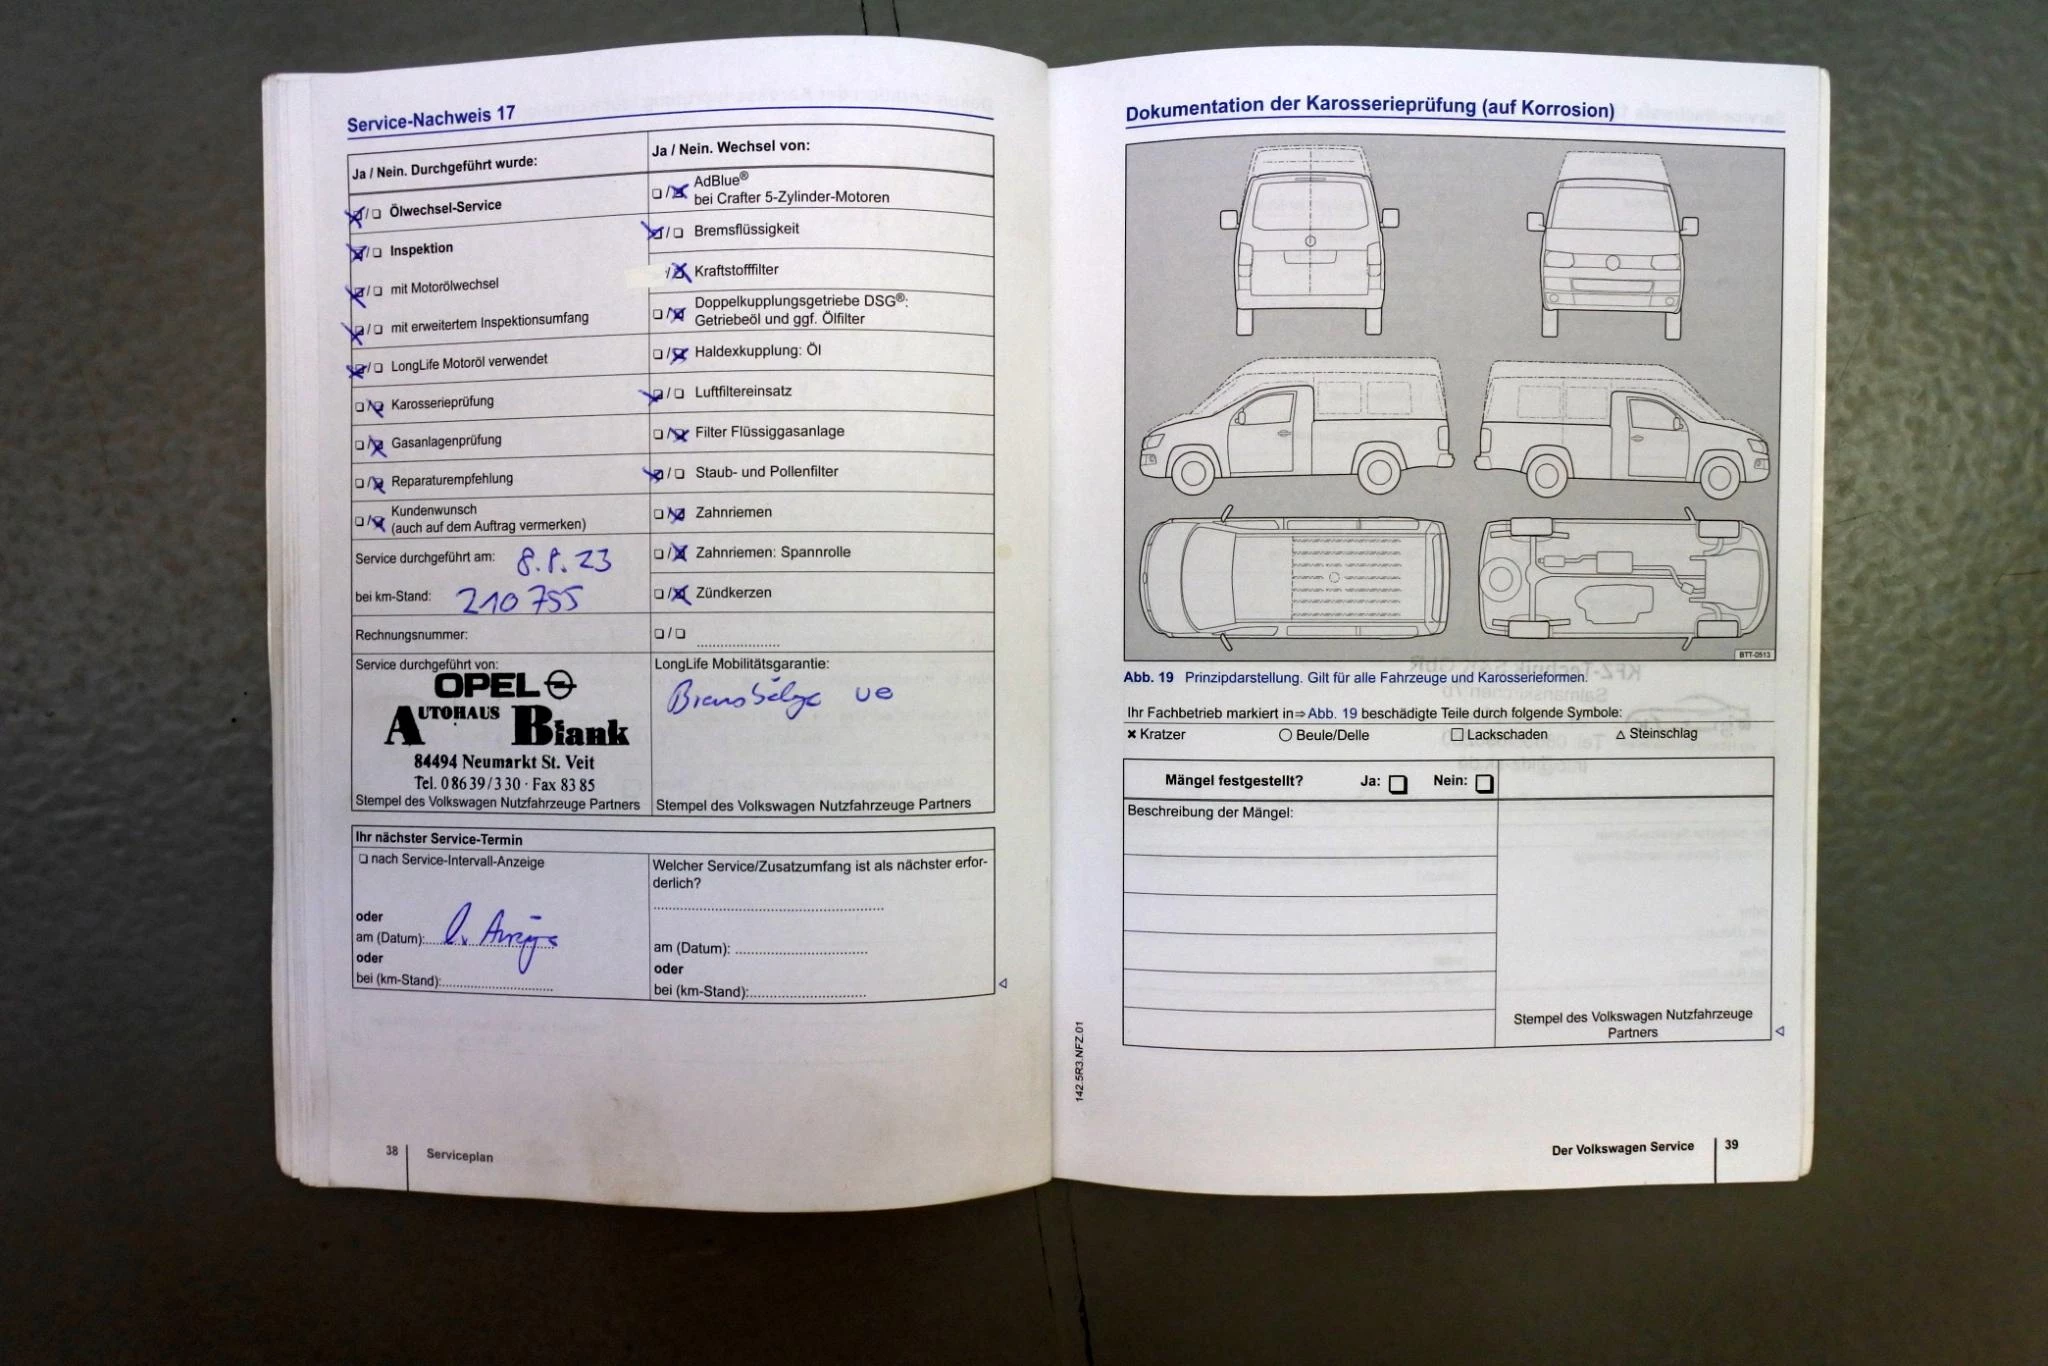 Service-Nachweis 17
Ja / Nein. Durchgeführt wurde:
Ölwechsel-Service
Inspektion
mit Motorölwechsel
mit erweitertem Inspektionsumfang
LongLife Motoröl verwendet
Karosserieprüfung
Gasanlagenprüfung
Reparaturempfehlung
Kundenwunsch
(auch auf dem Auftrag vermerken)
Service durchgeführt am: 8.8.23
bei km-Stand: 210 755
Rechnungsnummer:
Service durchgeführt von:
OPEL
AUTOHAUS Biank
84494 Neumarkt St. Veit
Tel. 08639/330 · Fax 8385
Stempel des Volkswagen Nutzfahrzeuge Partners
Ja / Nein. Wechsel von:
AdBlue®
bei Crafter 5-Zylinder-Motoren
Bremsflüssigkeit
Kraftstofffilter
Doppelkupplungsgetriebe DSG®:
Getriebeöl und ggf. Ölfilter
Haldexkupplung: Öl
Luftfiltereinsatz
Filter Flüssiggasanlage
Staub- und Pollenfilter
Zahnriemen
Zahnriemen: Spannrolle
Zündkerzen
LongLife Mobilitätsgarantie:
Stempel des Volkswagen Nutzfahrzeuge Partners
Ihr nächster Service-Termin
nach Service-Intervall-Anzeige
oder
am (Datum):
oder
bei (km-Stand):
Welcher Service/Zusatzumfang ist als nächster erfor-
derlich?
am (Datum):
oder
bei (km-Stand):
38 Serviceplan
Dokumentation der Karosserieprüfung (auf Korrosion)
BTT-0513
Abb. 19 Prinzipdarstellung. Gilt für alle Fahrzeuge und Karosserieformen.
Ihr Fachbetrieb markiert in⇒Abb. 19 beschädigte Teile durch folgende Symbole:
Kratzer Beule/Delle Lackschaden Steinschlag
Mängel festgestellt? Ja: Nein:
Beschreibung der Mängel:
Stempel des Volkswagen Nutzfahrzeuge
Partners
142.5R3.NFZ.01
Der Volkswagen Service 39